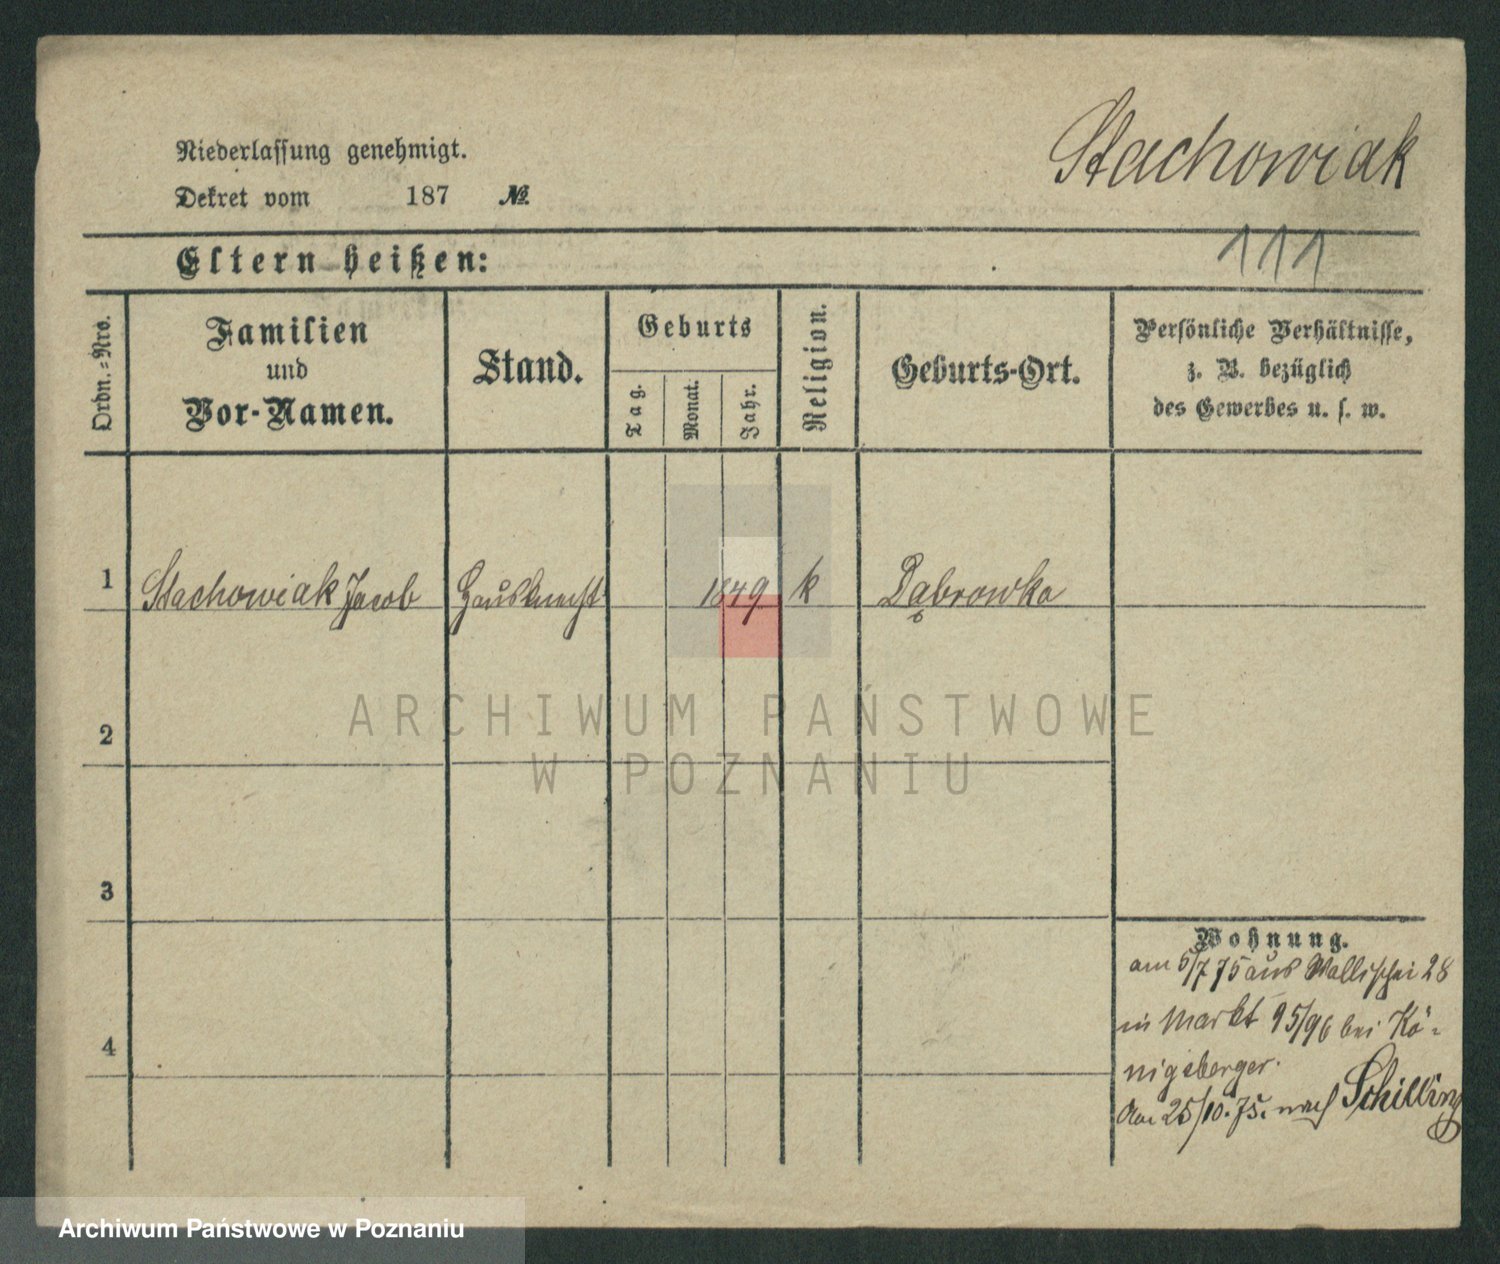 Stachowiak
Niederlassung genehmigt.
Dekret vom 187 №
111
Eltern heißen:
Ordn.-Nro.
Familien
und
Vor-Namen.
Stand.
Geburts
Tag.
Monat.
Jahr.
Religion.
Geburts-Ort.
Persönliche Verhältnisse,
z. B. bezüglich
des Gewerbes u. s. w.
1 Stachowiak Jacob Hausknecht 1849 k Dąbrowka
2
3
4
Wohnung.
am 5/7 75 aus Wallischei 28
in Markt 95/96 bei Kö-
nigsberger.
Am 25/10. 75. nach Schilling
ARCHIWUM PAŃSTWOWE
W POZNANIU
Archiwum Państwowe w Poznaniu